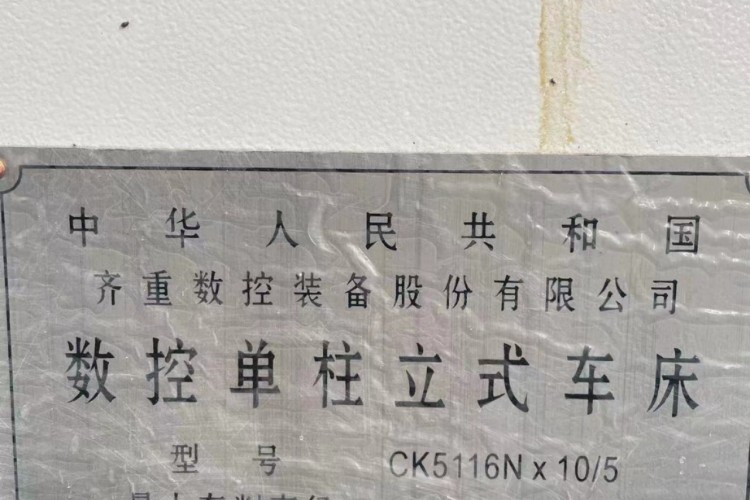 中华人民共和国
齐重数控装备股份有限公司
数控单柱立式车床
型号 CK5116N x 10/5